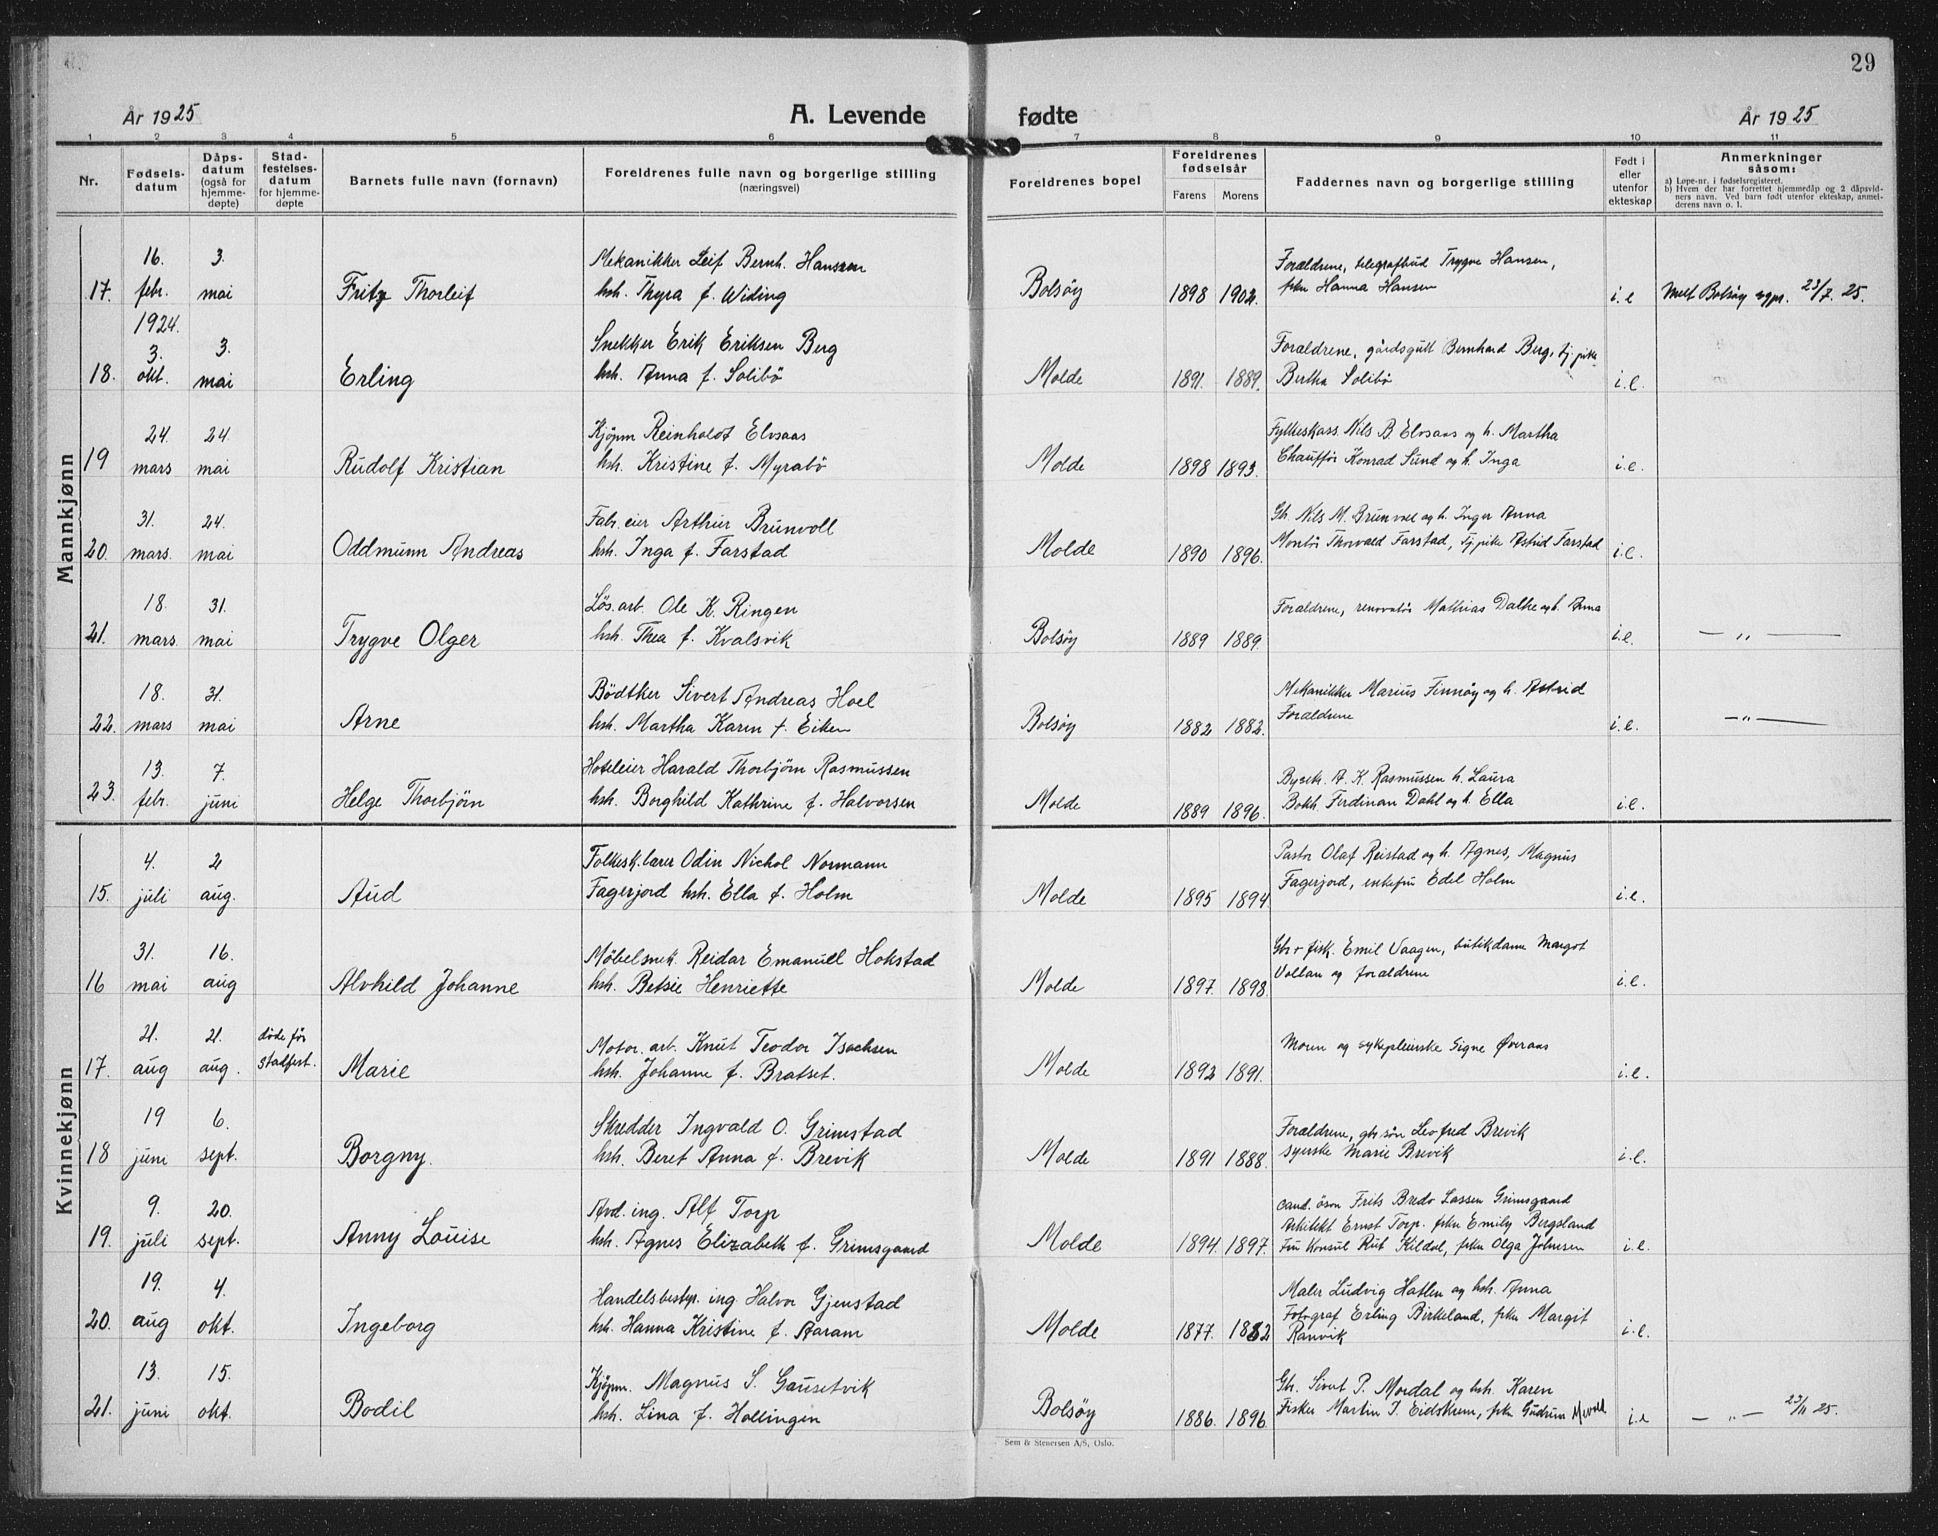 29
År 1925
A. Levende fødte
År 1925
1 2 3 4 5 6 7 8 9 10 11
Nr.
Fødsels-
datum
Dåps-
datum
(også for
hjemme-
døpte)
Stad-
festelses-
datum
for hjemme-
døpte
Barnets fulle navn (fornavn)
Foreldrenes fulle navn og borgerlige stilling
(næringsvei)
Foreldrenes bopel
Foreldrenes
fødselsår
Farens Morens
Faddernes navn og borgerlige stilling
Født i
eller
utenfor
ekteskap
Anmerkninger
såsom:
a) Løpe-nr. i fødselsregisteret.
b) Hvem der har forrettet hjemmedåp og 2 dåpsvid-
ners navn. Ved barn født utenfor ekteskap, anmel-
derens navn o. l.
Mannkjønn
16. 3. Mekanikker Leif Bernh. Hansen Forældrene, telegrafbud Trygve Hansen,
17. febr. mai Fritz Thorleif hsh. Thyra f. Widing Bolsøy 1898 1902. frkn Hanna Hansen i.e Melt Bolsøy sgpr. 23/7. 25.
1924.
3. 3. Snekker Erik Eriksen Berg Forældrene, gårdsgutt Bernhard Berg, tj.pike
18. okt. mai Erling hsh. Anna f. Solibø Molde 1891. 1889. Bertha Solibø i.e.
24. 24. Kjøpm Reinholdt Elvsaas Fylkeskass. Nils B Elvsaas og h. Martha
19 mars mai Rudolf Kristian hsh. Kristine f. Myrabø Molde 1898 1893. Chauffør Konrad Sund og h. Inga i.e.
31. 24. Fabr.eier Arthur Brunvoll Gb. Nils M. Brunvoll og h. Inger Anna
20. mars. mai Oddmunn Andreas hsh. Inga f. Farstad Molde 1890 1896. Montør Thorvald Farstad, tj.pike Astrid Farstad i.e.
18. 31. Løs.arb. Ole K. Ringen Forældrene, renovatør Mathias Dahle og h. Anna
21. mars. mai Trygve Olger hsh. Thea f. Kvalsvik Bolsøy 1889 1889. i.e. — „ —
18. 31. Bødtker Sivert Andreas Hoel Mekanikker Marius Finnøy og h. Astrid
22. mars mai Arne hsh. Martha Karen f. Eiken Bolsøy 1882 1882. Forældrene i.e. — „ —
13. 7. Hoteleier Harald Thorbjørn Rasmussen A. K. Rasmussen h. Laura
23. febr. juni Helge Thorbjørn hsh. Borghild Kathrine f. Halvorsen Molde 1889 1896. Bokh. Ferdinan Dahl og h. Ella i.e.
Kvinnekjønn
4. 2 Folkesk.lærer Odin Nichol Normann Pastor Olaf Reistad og h. Agnes, Magnus
15. juli aug. Aud Fagerjord hsh. Ella f. Holm Molde 1895 1894 Fagerjord, enkefru Edel Holm i.e.
31. 16. Møbelsnek. Reidar Emanuell Hokstad Gbr fisk. Emil Vaagen, butikdame Margot
16 mai aug Alvhild Johanne hsh. Betsie Henriette Molde 1897. 1898. Vollan og forældrene i.e.
21. 21. døde før Motor. arb. Knut Teodor Isachsen Moren og sykepleierske Signe Øveraas
17. aug aug. stadfest. Marie hsh. Johanne f. Bratset. Molde 1892 1891. i.e.
19 6. Skredder Ingvald O. Grimstad Forældrene, gbr søn Leofred Brevik
18 juni sept. Borgny. hsh. Beret Anna f. Brevik Molde 1891 1888. syerske Marie Brevik i.e.
9. 20. Avd. ing. Alf Torp cand. øson Frits Bredo Lassen Grimsgaard
Arkitekt Ernst Torp. frkn Emily Bergsland
19. juli sept. Anny Louise hsh. Agnes Elizabeth f. Grimsgaard Molde 1894. 1897. Fru Konsul Rut Kildal, frkn Olga Johnsen i.e.
19. 4. Handelsbestyr. ing. Halvor Gjenstad Maler Ludvig Hatlen og hsh. Anna
Fotograf Erling Birkeland, frkn Margit
20. aug okt. Ingeborg hsh. Hanna Kristine f. Aaram Molde 1877. 1882 Ranvik i.e.
13. 15. Kjøpm. Magnus S. Gausetvik Gb. Sivert P. Mordal og hsh. Karen
21. juni okt. Bodil hsh. Lina f. Hollingen Bolsøy 1886. 1896 Fisker Martin J. Eidskrem, frkn Gudrun i.e — „ — 23/11 25.
Sem & Stenersen A/S, Oslo.